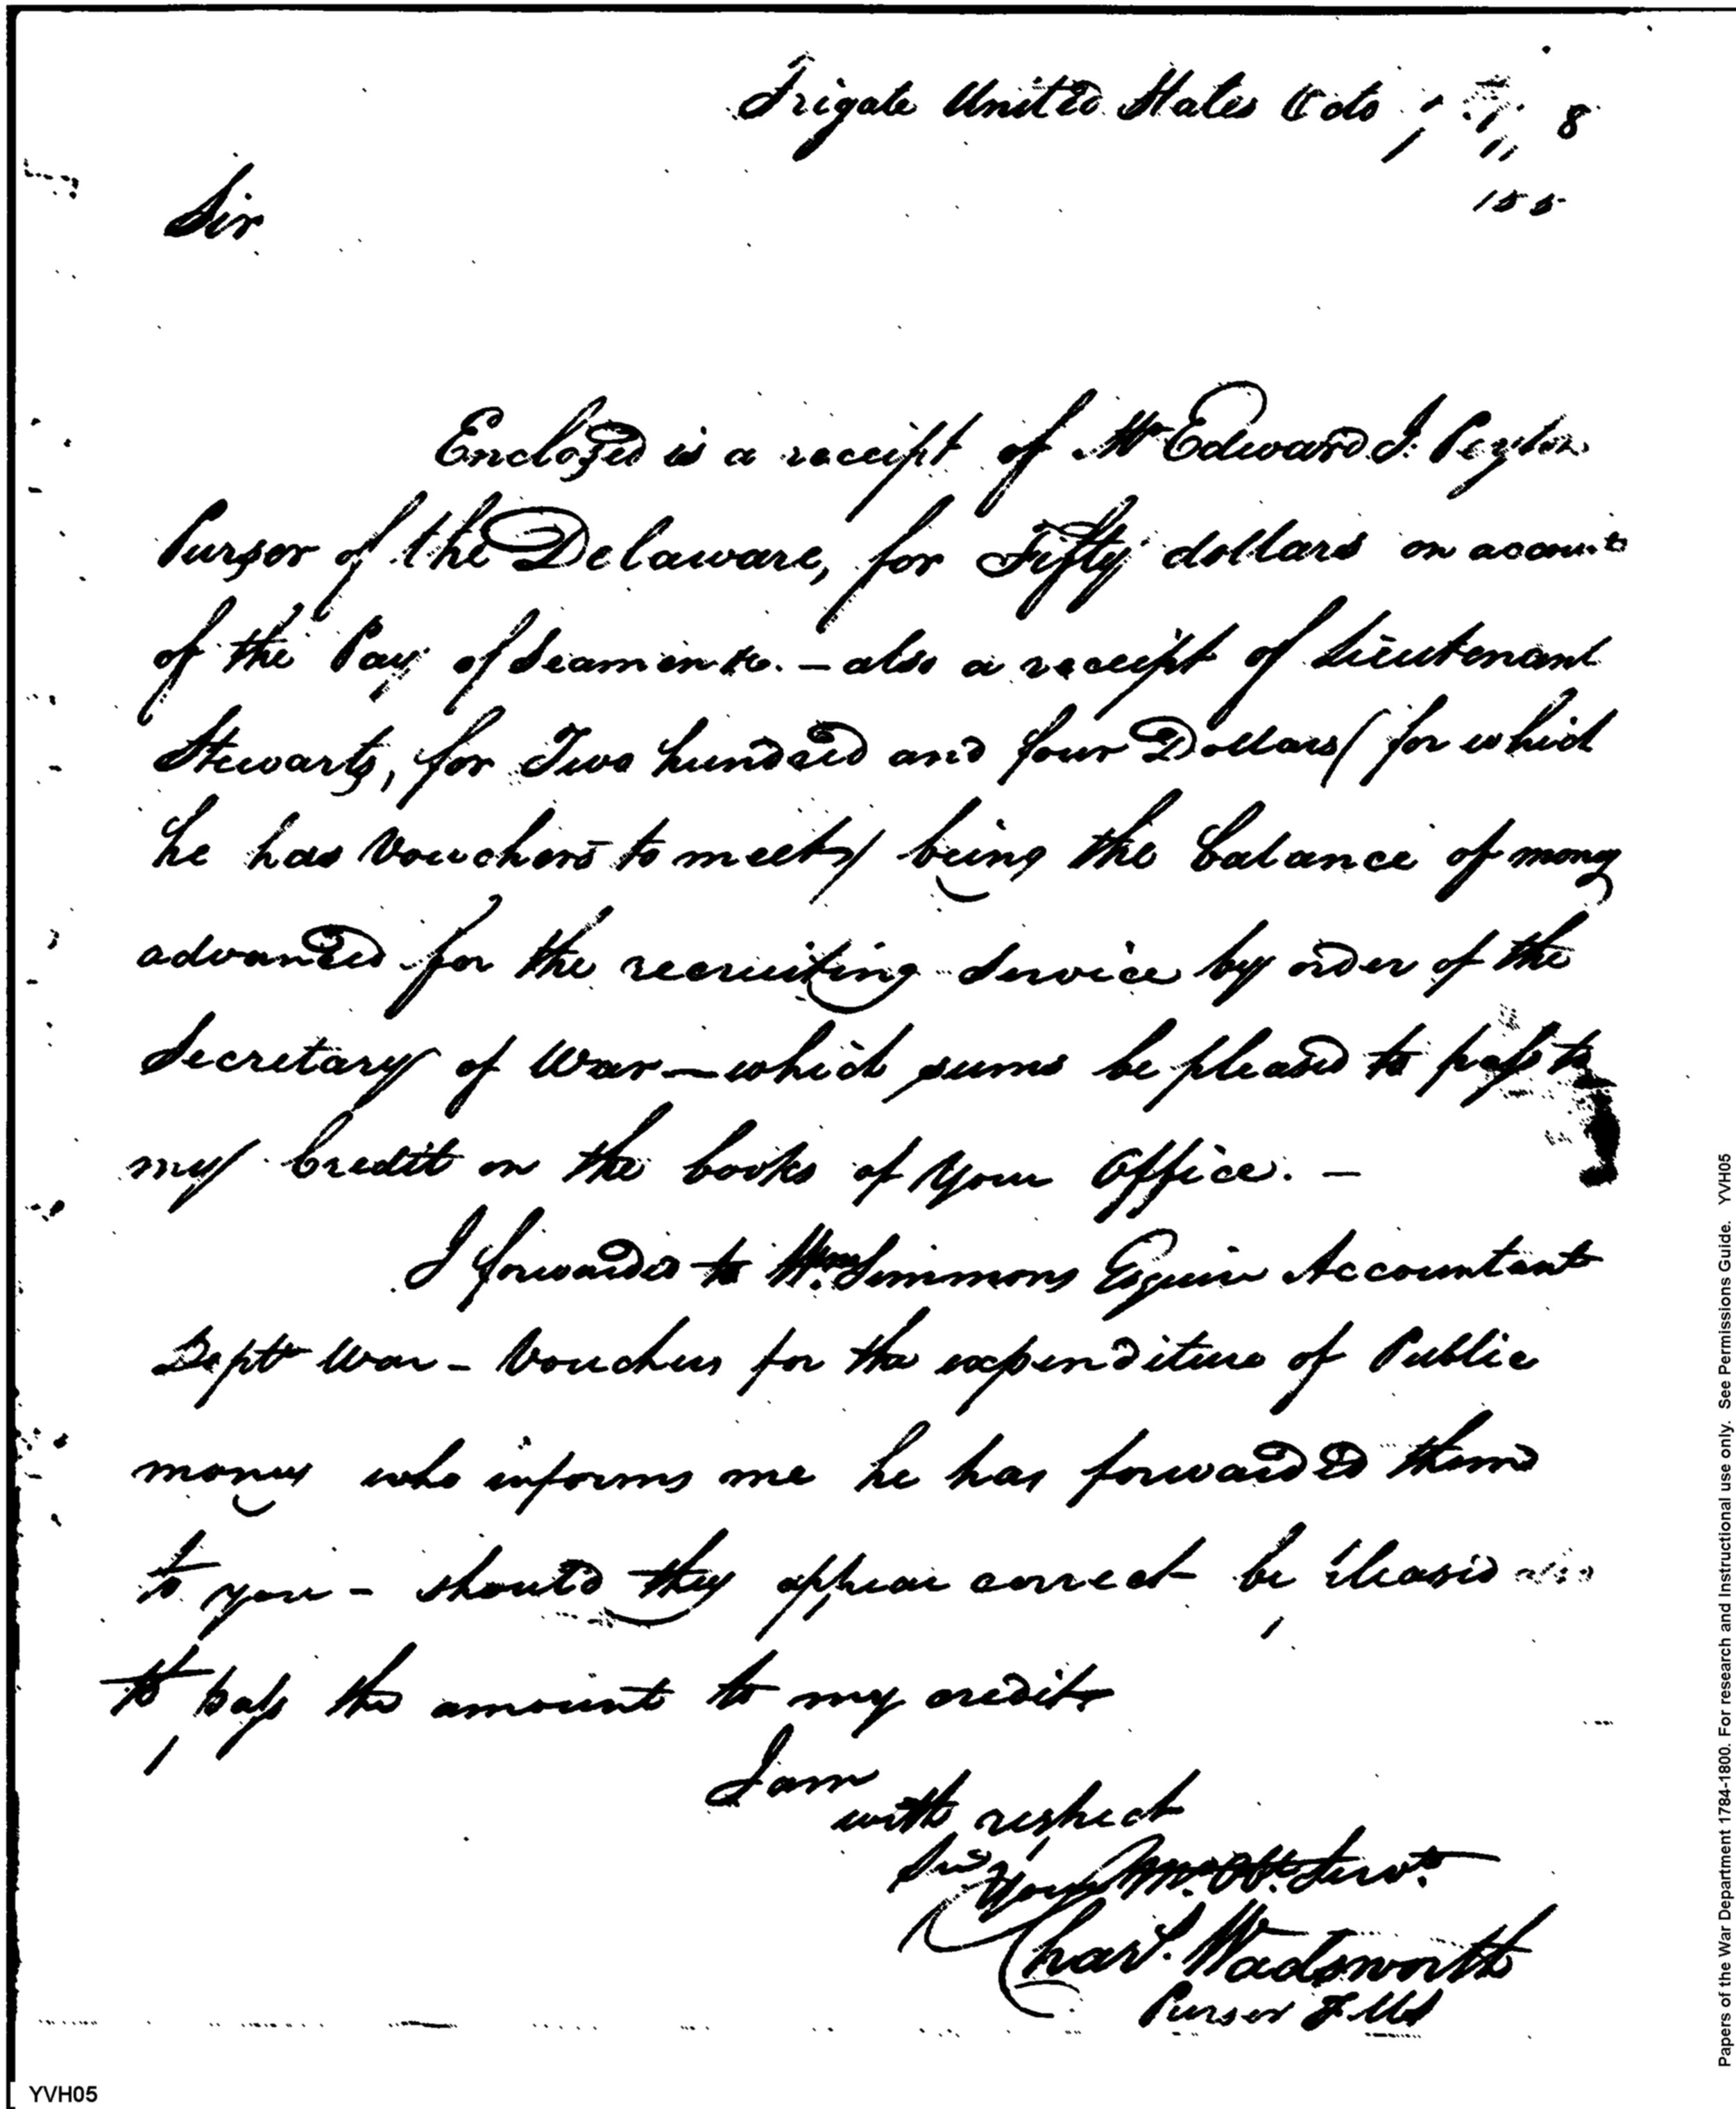 Frigate United States 8
155
Sir
Enclosed is a receipt of Mr Edward J. Peyton
Purser of the Delaware, for Fifty dollars on account
of the Pay of Seamen &c. – also a receipt of Lieutenant
Stewarts, for Two hundred and four Dollars (for which
he has Vouchers to meet) being the balance of money
advanced for the recruiting Service by order of the
Secretary of War – which sums be pleased to pass to
my Credit on the books of your Office. –
I forwarded to Wm Simmons Esquire Accountant
Dept War – Vouchers for the expenditure of Public
money who informs me he has forwarded them
to you – should they appear correct be pleased also
to pass the amount to my credit
I am
with respect
Sir
Your Mo. Ob. Servt.
Chas. Wadsworth
Purser F. US
YVH05
Papers of the War Department 1784-1800. For research and Instructional use only. See Permissions Guide. YVH05